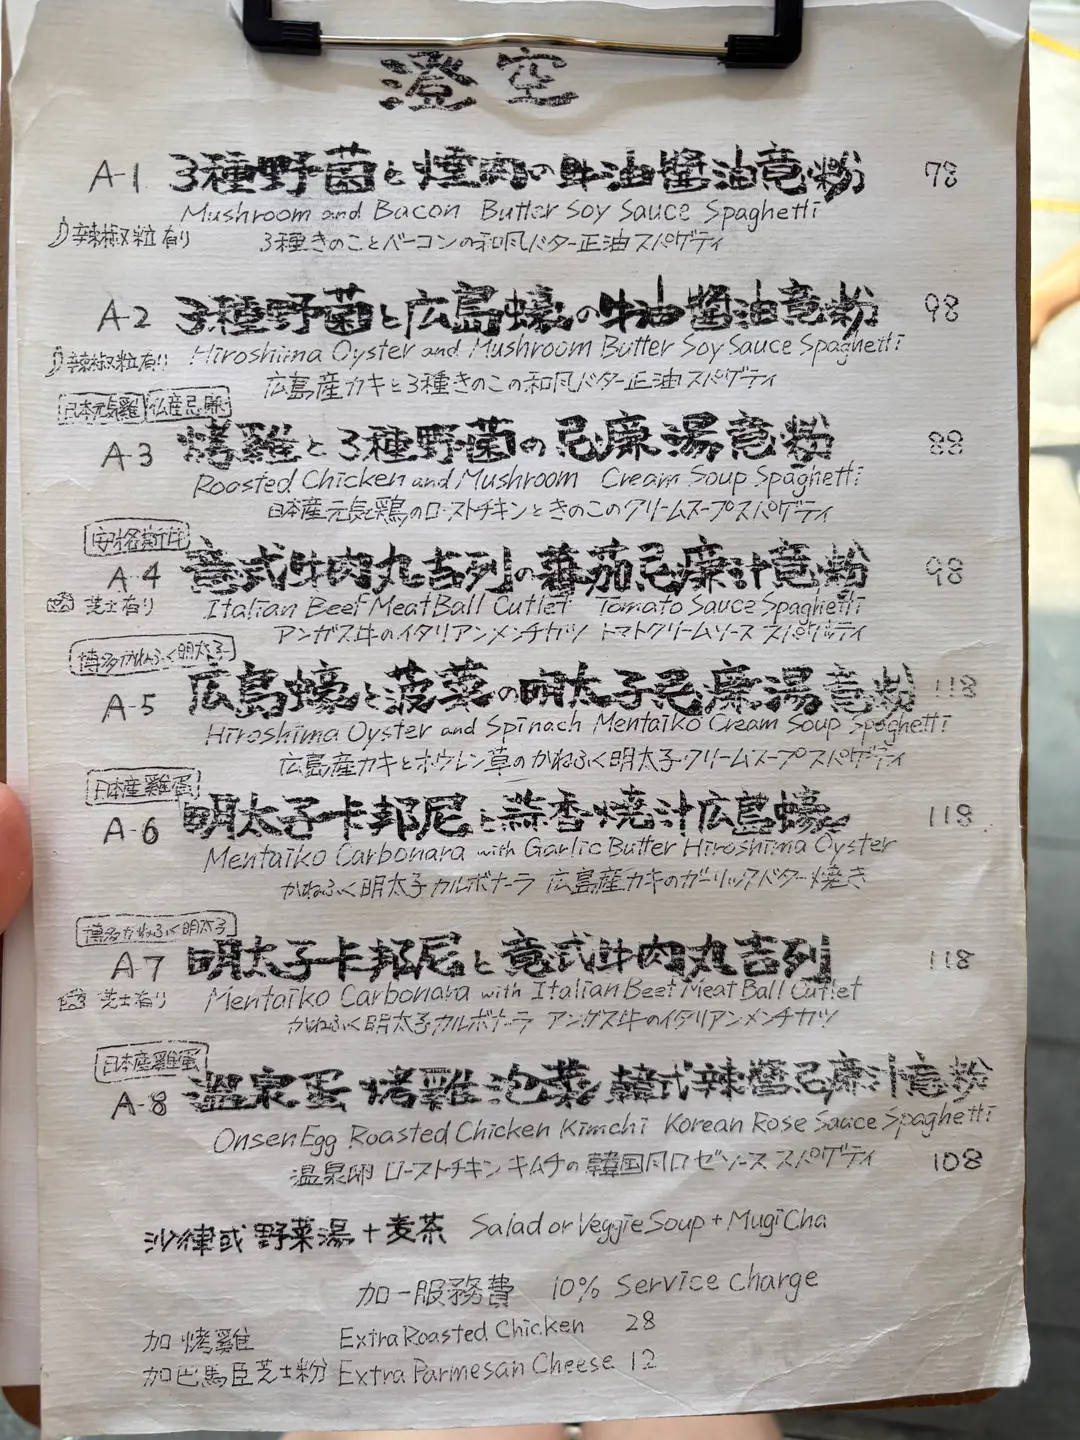 澄空
A-1 3種野菌と燻肉の牛油醬油意粉 78
Mushroom and Bacon Butter Soy Sauce Spaghetti
辣椒粒有り 3種きのことベーコンの和風バター正油スパゲティ
A-2 3種野菌と広島蠔の牛油醬油意粉 98
Hiroshima Oyster and Mushroom Butter Soy Sauce Spaghetti
辣椒粒有り
広島産カキと3種きのこの和風バター正油スパゲティ
日本元気雞 仏産忌廉
A-3 烤雞と3種野菌の忌廉湯意粉 88
Roasted Chicken and Mushroom Cream Soup Spaghetti
日本産元気鶏のローストチキンときのこのクリームスープスパゲティ
安格斯牛
A-4 意式牛肉丸吉列の蕃茄忌廉汁意粉 98
芝士有り Italian Beef MeatBall Cutlet Tomato Sauce Spaghetti
アンガス牛のイタリアンメンチカツ トマトクリームソース スパゲティ
博多かねふく明太子
A-5 広島蠔と菠菜の明太子忌廉湯意粉 118
Hiroshima Oyster and Spinach Mentaiko Cream Soup Spaghetti
広島産カキとホウレン草のかねふく明太子クリームスープスパゲティ
日本産雞蛋
A-6 明太子卡邦尼と蒜香焼汁広島蠔 118
Mentaiko Carbonara with Garlic Butter Hiroshima Oyster
かねふく明太子カルボナーラ 広島産カキのガーリックバター焼き
博多かねふく明太子
A-7 明太子卡邦尼と意式牛肉丸吉列 118
芝士有り Mentaiko Carbonara with Italian Beef Meat Ball Cutlet
かねふく明太子カルボナーラ アンガス牛のイタリアンメンチカツ
日本産雞蛋
A-8 溫泉蛋 烤雞泡菜 韓式辣醬忌廉汁意粉
Onsen Egg Roasted Chicken Kimchi Korean Rose Sauce Spaghetti
温泉卵 ローストチキン キムチの韓国風ロゼソース スパゲティ 108
沙律或野菜湯+麦茶 Salad or Veggie Soup + MugiCha
加一服務費 10% Service Charge
加烤雞 Extra Roasted Chicken 28
加巴馬臣芝士粉 Extra Parmesan Cheese 12